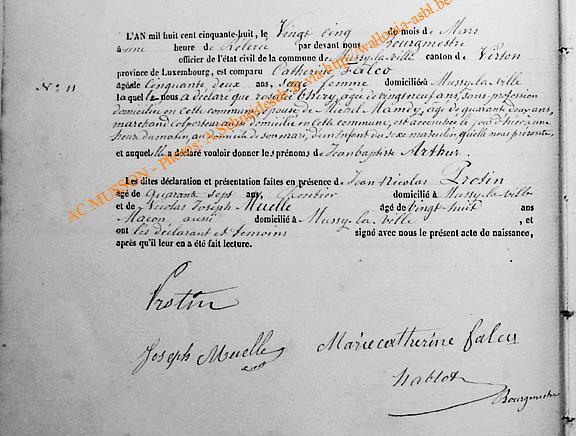 L'AN mil huit cent cinquante-huit, le Vingt cinq du mois de Mars
à une heure de Relevée par devant nous Bourgmestre
officier de l'état civil de la commune de Mussy-la-ville canton de Virton
N° 11 province de Luxembourg, est comparu Catherine Falco
âgée de Cinquante deux ans, Sage femme domiciliée à Mussy-la-ville
laquelle nous a déclaré que Rosalie Thiéry, âgée de vingt neuf ans, Sans profession
domiciliée en Cette commune, épouse de Michel Mandy, âgé de quarante deux ans,
marchand colporteur aussi domicilié en cette commune, est accouchée ce jourd'hui, à une
heure du matin, au domicile de son mari, d'un Enfant du Sexe masculin qu'elle nous présente,
et auquel elle a déclaré vouloir donner les prénoms de Jean baptiste Arthur.
Les dites déclaration et présentation faites en présence de Jean Nicolas Protin
âgé de Quarante Sept ans, domicilié à Mussy-la-ville
et de Nicolas Joseph Muelle âgé de Vingt huit ans
Maçon aussi domicilié à Mussy la ville, et
ont les déclarant et témoins signé avec nous le présent acte de naissance,
après qu'il leur en a été fait lecture.
Protin
Joseph Muelle
Marie catherine falco
hablot
Bourgmestre
AC MUSSON - Photos: A.Schmidesch © via http://wallonia-asbl.be